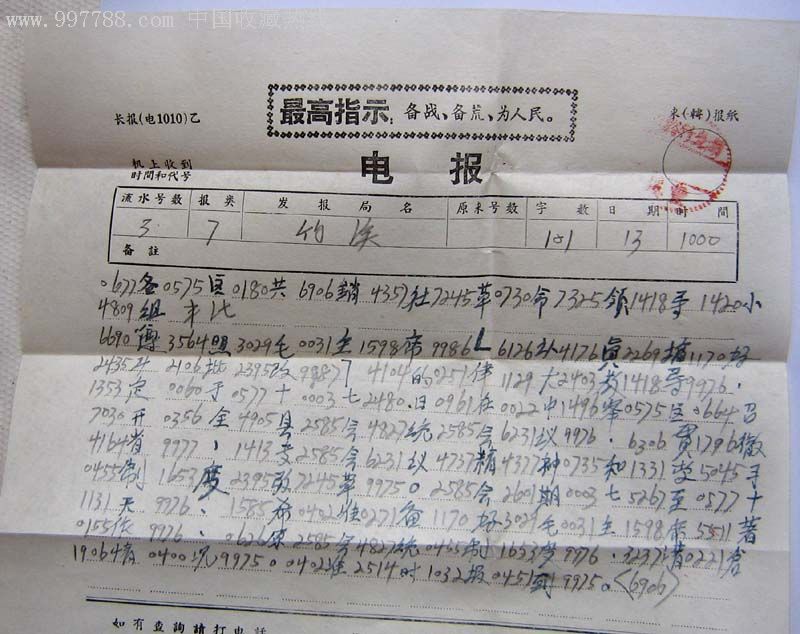 www.997788.com 中国收藏热线
最高指示：备战、备荒、为人民。
长报(电1010)乙
来(转)报纸
电报
机上收到
时间和代号
流水号数 报类 发报局名 原来号数 字数 日期 时间
3 7 竹溪 101 13 1000
备註
0677各0575区0180共6906銷4357社7245革0730命7325領1418导1420小
4809組
6690 3564照3029毛0031主1598席9986 6126 4176真2269 1170好
2435 2106批2395改9987 4104的0251伟1129大2403教1418导9976，
1353定0060于0577十0003七2480日0961在0022中1496 0575区0664召
7030开0356全4905县2585会4827統2585会6231议9976，6306貫1796徹
4164省9977、1413 2585会6231议4737精4377神0735和1331 5045
0455制1653度2395改7245革9975。2585会2601期0003七5267至0577十
1131天9976，1585希0402准0271备1170好3029毛0031主1598席5511著
0155 9976， 2585会4827統0455制1653度9976，3237 0221
1906情0400况9975。0402准2514时1032报0451到9975。(6906)
如有查詢請打电話